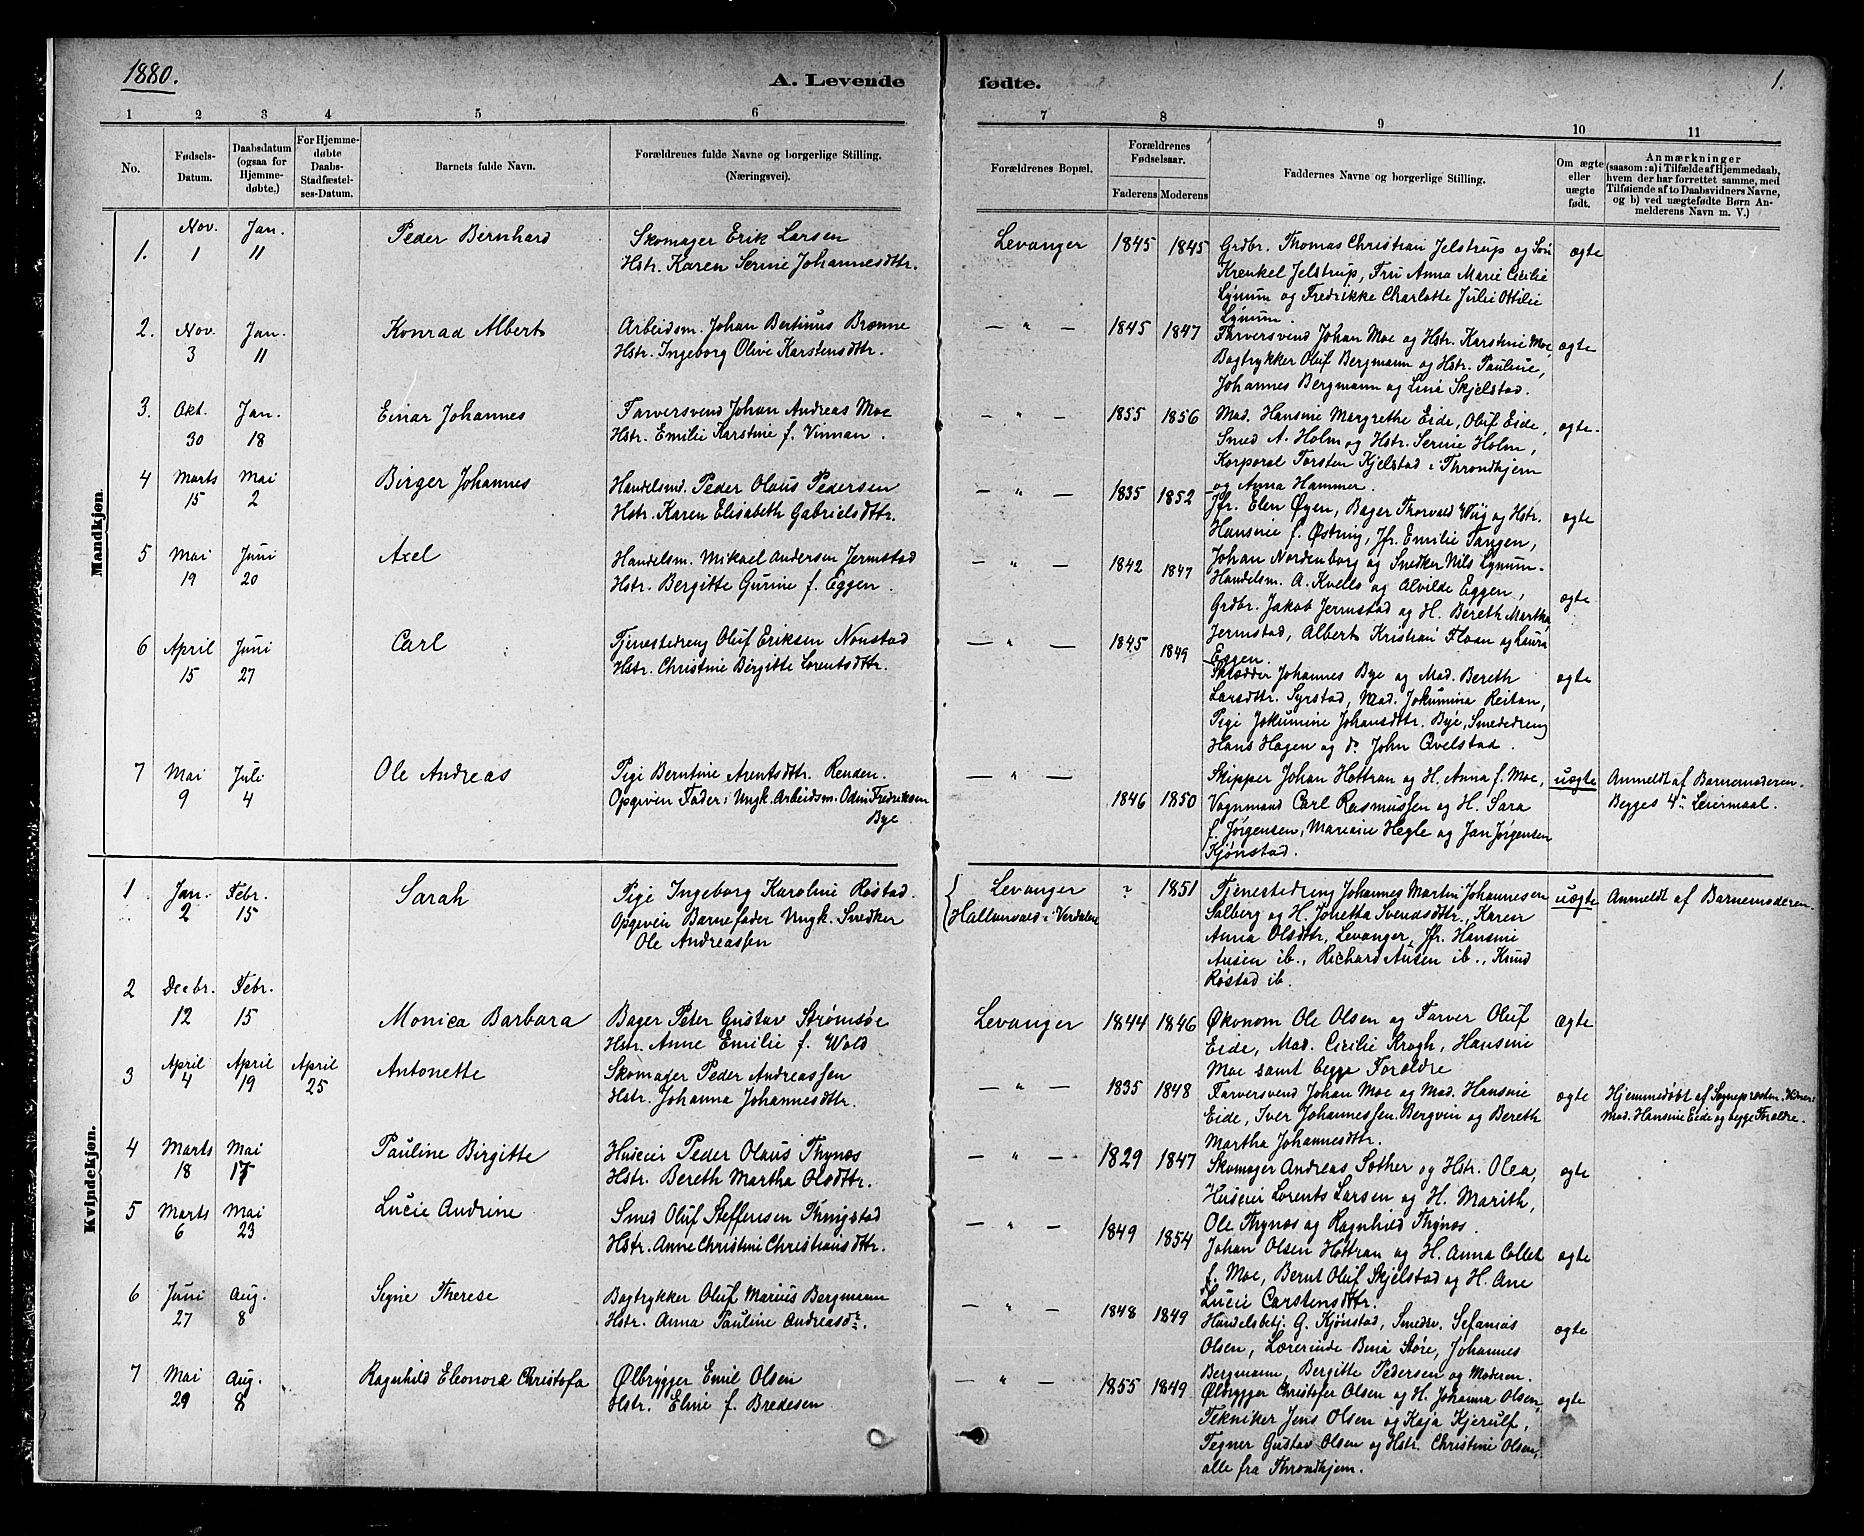 1880.
A. Levende fødte.
1.
1 2 3 4 5 6 7 8 9 10 11
No.
Fødsels-Datum.
Daabsdatum (ogsaa for Hjemmedøbte.)
For Hjemmedøbte Daabs-Stadfæstelses-Datum.
Barnets fulde Navn.
Forældrenes fulde Navne og borgerlige Stilling. (Næringsvei).
Forældrenes Bopæl.
Forældrenes Fødselsaar.
Faderens Moderens
Faddernes Navne og borgerlige Stilling.
Om ægte eller uægte født.
Anmærkninger
(saasom: a) i Tilfælde af Hjemmedaab,
hvem der har forrettet samme, med
Tilføiende af to Daabsvidners Navne,
og b) ved uægtefødte Børn Anmelderens Navn m. V.)
Mandkjøn.
1. Nov. 1 Jan. 11 Peder Bernhard
Skomager Erik Larsen
Hstr. Karen Serine Johannesdttr.
Levanger 1845 1845
Grdbr. Thomas Christian Jelstrup og Søn
Krenkel Jelstrup, Fru Anna Marie Cicilie
Lynum og Fredrikke Charlotte Julie Ottilie
Lynum.
ægte
2. Nov. 3 Jan. 11 Konrad Albert
Arbeidsm. Johan Bertinus Brønne
Hstr. Ingeborg Olive Karstensdttr.
— " — 1845 1847
Farversvend Johan Moe og Hstr. Karstine Moe,
Bogtrykker Oluf Bergmann og Hstr. Pauline,
Johannes Bergmann og Line Skjelstad.
ægte
3. Okt. 30 Jan. 18 Einar Johannes
Farversvend Johan Andreas Moe
Hstr. Emilie Karstine f. Vinnan.
— " — 1855 1856
Mad. Hansine Margrethe Eide, Oluf Eide,
Smed A. Holm og Hstr. Serine Holm,
Korporal Torsten Kjelstad i Throndhjem
og Anna Hammer.
ægte.
4 Marts 15 Mai 2 Birger Johannes
Handelsmd. Peder Olaus Pedersen
Hstr. Karen Elisabeth Gabrielsdttr.
— " — 1835 1852
Jfr. Elen Øyen, Bager Thorvald Wiig og Hstr.
Hansine f. Østing, Jfr. Emilie Tangen,
Johan Nordenborg og Snedker Nils Lynum.
ægte
5 Mai 19 Juni 20 Axel
Handelsm. Mikael Andersen Jermstad
Hstr. Bergitte Gurine f. Eggen.
— " — 1842 1847
Handelsm. A. Kvello og Alvilde Eggen,
Grdbr. Jakob Jermstad og H. Bereth Martha
Jermstad, Albert Kristian Floan og Laura
Eggen.
ægte
6 April 15 Juni 27 Carl
Tjenestedreng Oluf Eriksen Nonstad
Hstr. Christine Birgitte Lorentsdttr.
— " — 1845 1849
Skrædder Johannes Bye og Mad. Bereth
Larsdttr. Syrstad, Mad. Jokumina Reitan,
Pige Jokumine Johansdttr. Bye, Smededreng
Hans Hagen og do. John Qvelstad.
ægte
7 Mai 9 Juli 4 Ole Andreas
Pige Berntine Arentsdttr. Renden.
Opgiven Fader: Ungk. Arbeidsm. Odin Fredriksen
Bye
— " — 1846 1850
Skipper Johan Hottran og H. Anna f. Moe,
Vognmand Carl Rasmussen og H. Sara
f. Jørgensen, Mariane Hegle og Jan Jørgensen
Kjønstad.
uægte
Anmeldt af Barnemoderen.
Begges 4de Leiermaal.
Kvindekjøn.
1 Jan. 2 Febr. 15 Sarah
Pige Ingeborg Karoline Røstad
Opgiven Barnefader Ungk. Snedker
Ole Andreassen
Levanger
Hallemvald i Verdalen
? 1851
Tjenestedreng Johannes Martin Johannesen
Salberg og H. Jonetta Svendsdttr., Karen
Anna Olsdttr, Levanger, Jfr. Hansine
Ausen ib., Richard Ausen ib., Knud
Røstad ib.
uægte
Anmeldt af Barnemoderen.
2 Decbr. 12 Febr. 15 Monica Barbara
Bager Peter Gustav Strømsøe
Hstr. Anne Emilie f. Wold
Levanger 1844 1846
Økonom Ole Olsen og Farver Oluf
Eide, Mad. Cicilie Krogh, Hansine
Moe samt begge Forældre
ægte
3 April 4 April 19 April 25 Antonette
Skomager Peder Andreassen
Hstr. Johanna Johannesdttr.
— " — 1835 1848
Farversvend Johan Moe og Mad. Hansine
Eide, Iver Johannessen Bergvin og Bereth
Martha Johannesdttr.
ægte
Hjemmedøbt af Sogneprosten. Vidner:
Mad. Hansine Eide og begge Forældre.
4 Marts 18 Mai 17 Pauline Birgitte
Huseier Peder Olaus Thynæs
Hstr. Bereth Martha Olsdttr.
— " — 1829 1847
Skomager Andreas Sother og Hstr. Olea,
Huseier Lorents Larsen og H. Marith,
Ole Thynæs og Ragnhild Thynæs.
ægte
5 Marts 6 Mai 23 Lucie Andrine
Smed Oluf Steffensen Thingstad
Hstr. Anne Christine Christiansdttr.
— " — 1849 1854
Johan Olsen Hottran og H. Anna Collet
f. Moe, Bernt Oluf Skjelstad og H. Ane
Lucie Carstensdttr.
ægte
6 Juni 27 Aug. 8 Signe Therese
Bogtrykker Oluf Marius Bergmann
Hstr. Anna Pauline Andreasdr.
— " — 1848 1849
Handelsbetj. G. Kjønstad, Smedsv. Sefanias
Olsen, Lærerinde Bina Støre, Johannes
Bergmann, Bergitte Pedersen og Moderen.
ægte
7 Mai 29 Aug. 8 Ragnhild Eleonore Christofa
Ølbrygger Emil Olsen
Hstr. Eline f. Bredesen
— " — 1855 1849
Ølbrygger Christofer Olsen og H. Johanna Olsen,
Tekniker Jens Olsen og Kaja Kjerulf,
Tegner Gustav Olsen og Hstr. Christine Olsen,
alle fra Throndhjem.
ægte